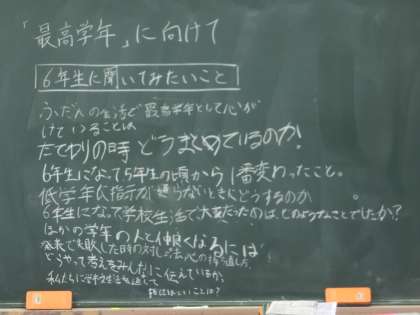 「最高学年」に向けて
6年生に聞いてみたいこと
ふだんの生活で最高学年として心が
けていることは
たてわりの時どうまとめているのか!
6年生になって5年生の頃から1番変わったこと。
低学年に指示が通らないときにどうするのか
6年生になって学校生活で大変だったのは、どのようなことでしたか?
ほかの学年の人と仲良くなるには
発表で失敗した時の対しょ法、心の持ち直し方
どうやって考えをみんなに伝えているか、
私たちに学校生活を通して